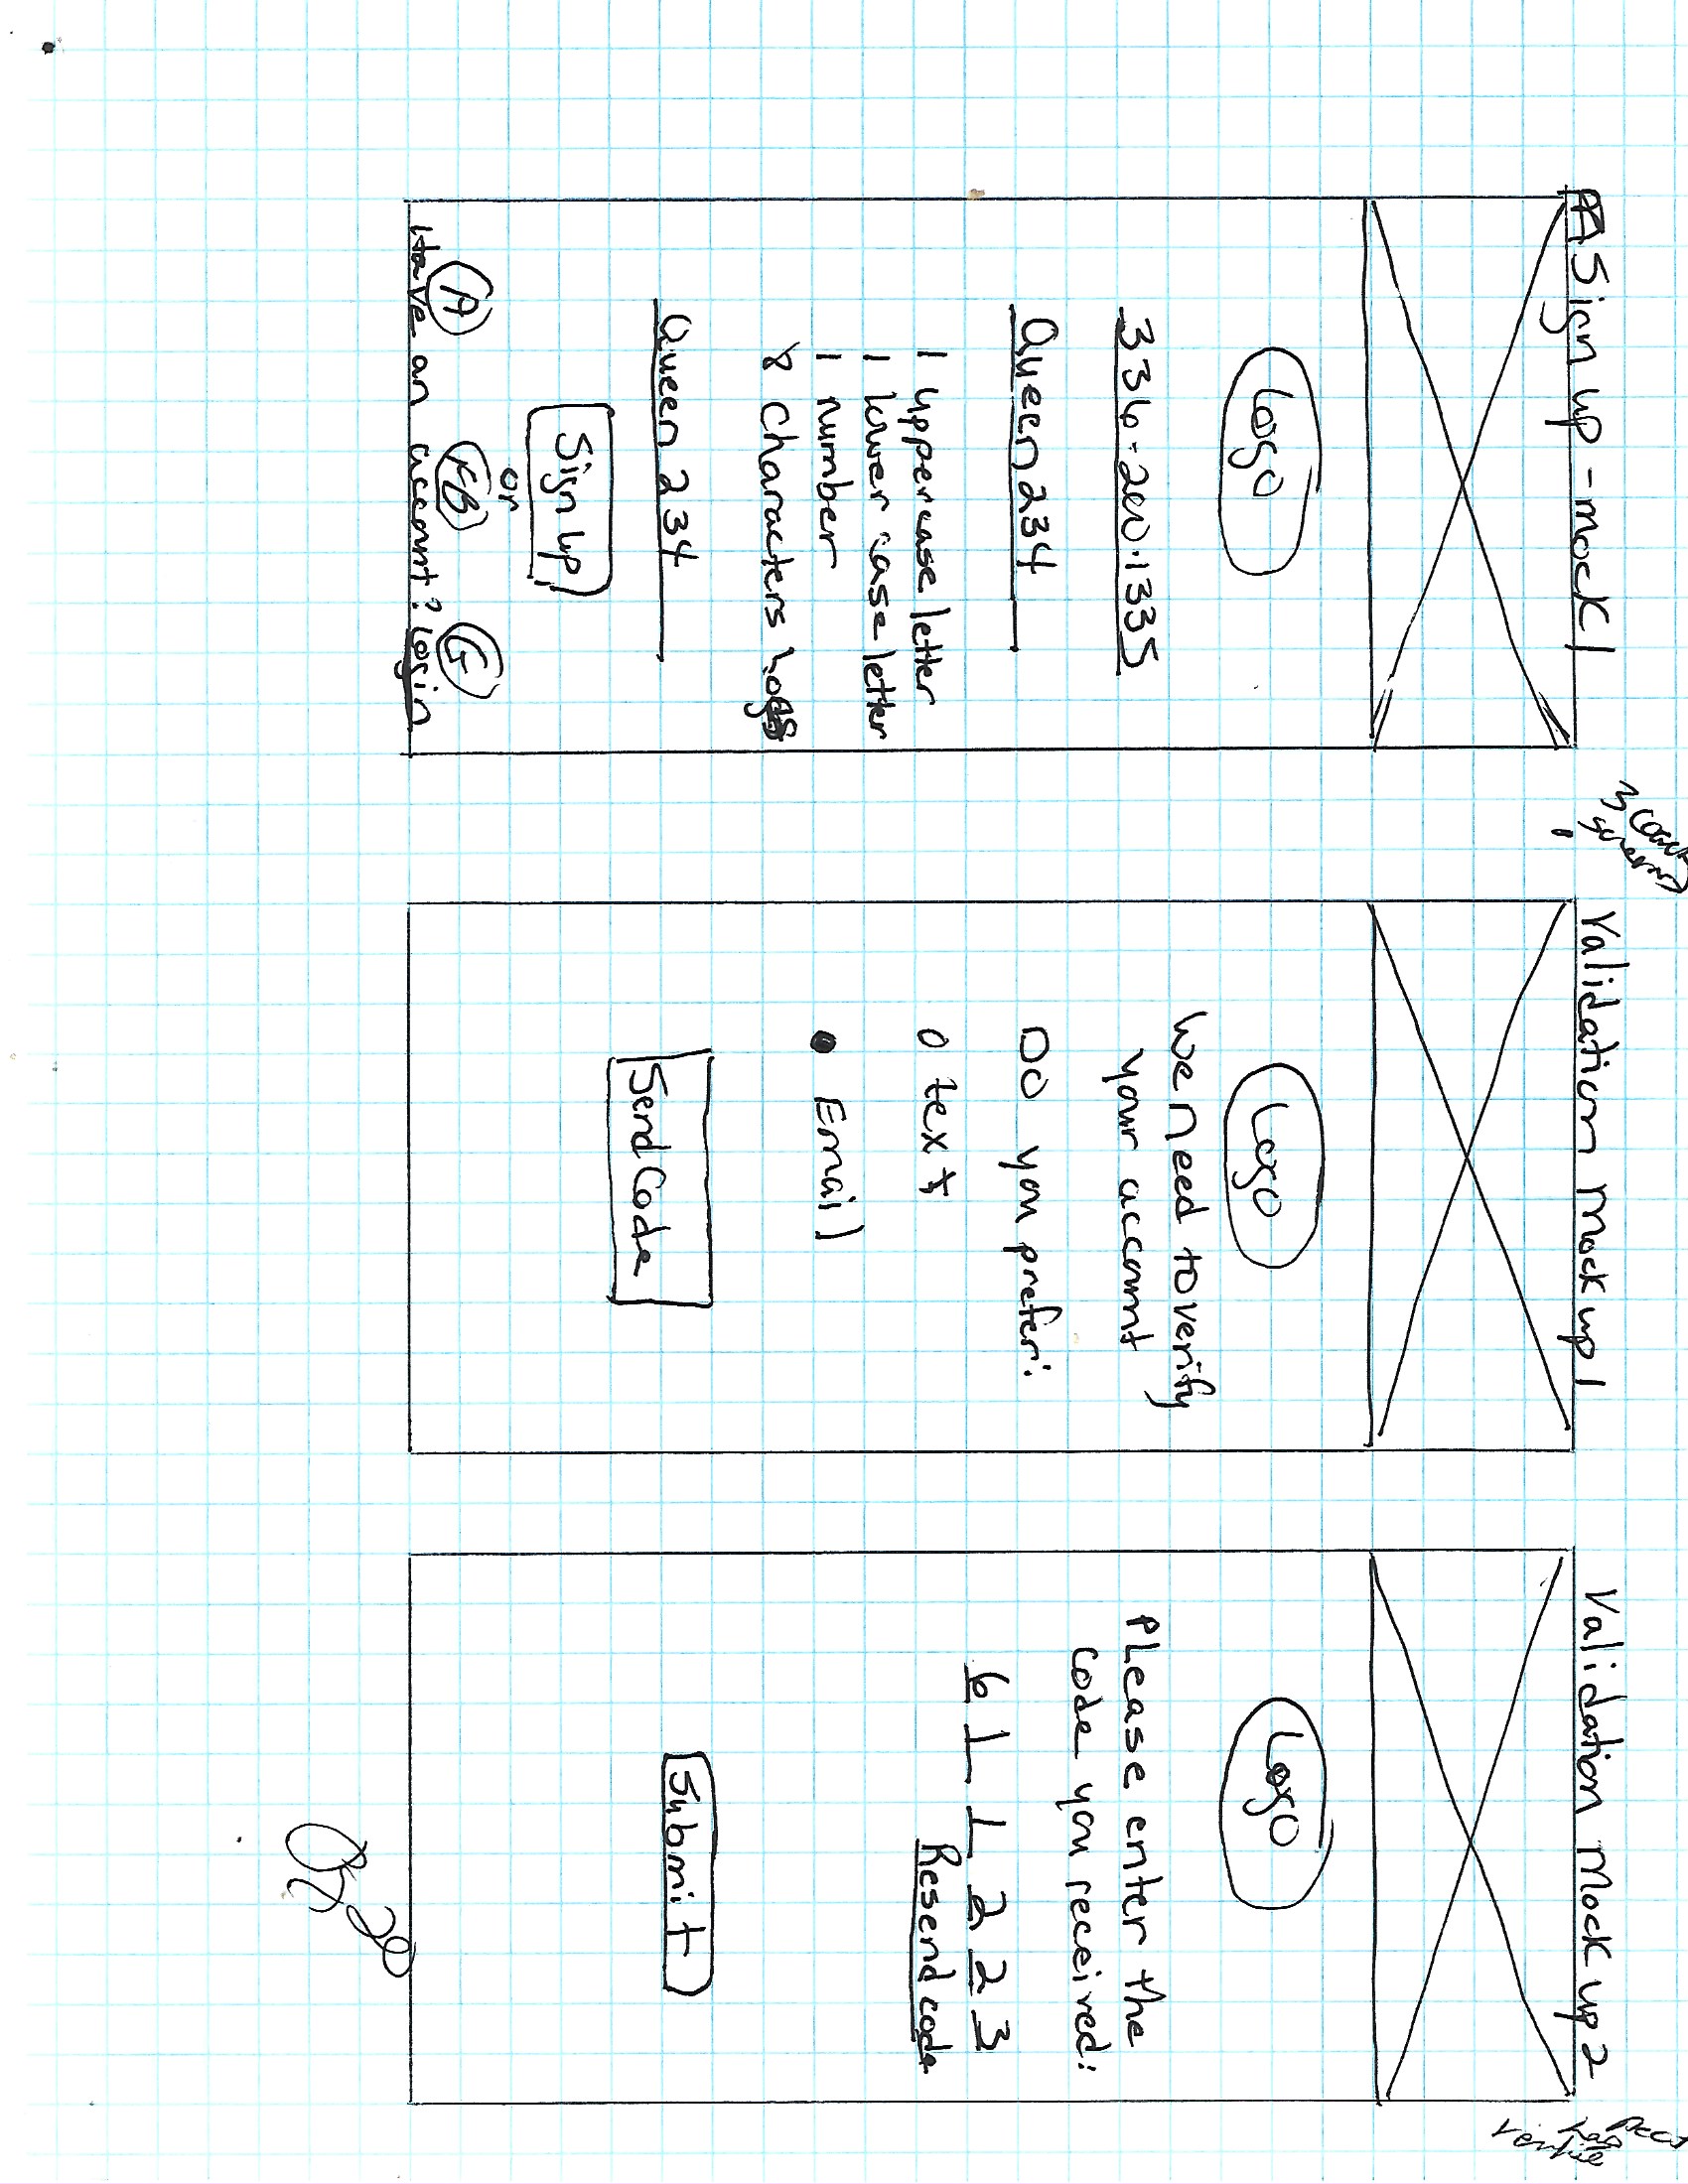 Sign up - mock 1
Logo
336-200-1335
Queen234
1 uppercase letter
1 lower case letter
1 number
8 characters
Queen234
Sign up
or
A
FB
G
Have an account? login
Validation mock up 1
Logo
We need to verify
your account
Do you prefer:
text
Email
Send Code
Validation mock up 2
Logo
Please enter the
code you received:
6 1 1 2 2 3
Resend code
Submit